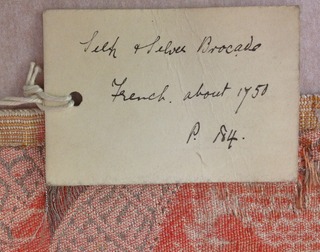 Silk & Silver Brocade
French. about 1750
P. 84.